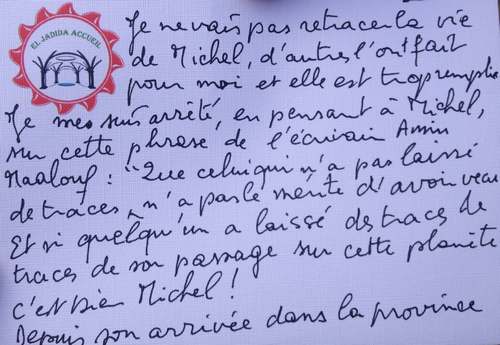 EL JADIDA ACCUEIL
Je ne vais pas retracer la vie
de Michel, d'autres l'ont fait
pour moi et elle est trop remplie
Je me suis arrêté, en pensant à Michel,
sur cette phrase de l'écrivain Amin
Maalouf : "Que celui qui n'a pas laissé
de traces, n'a pas le mérite d'avoir vécu
Et si quelqu'un a laissé des traces de
traces de son passage sur cette planète
c'est bien Michel !
Depuis son arrivée dans la province